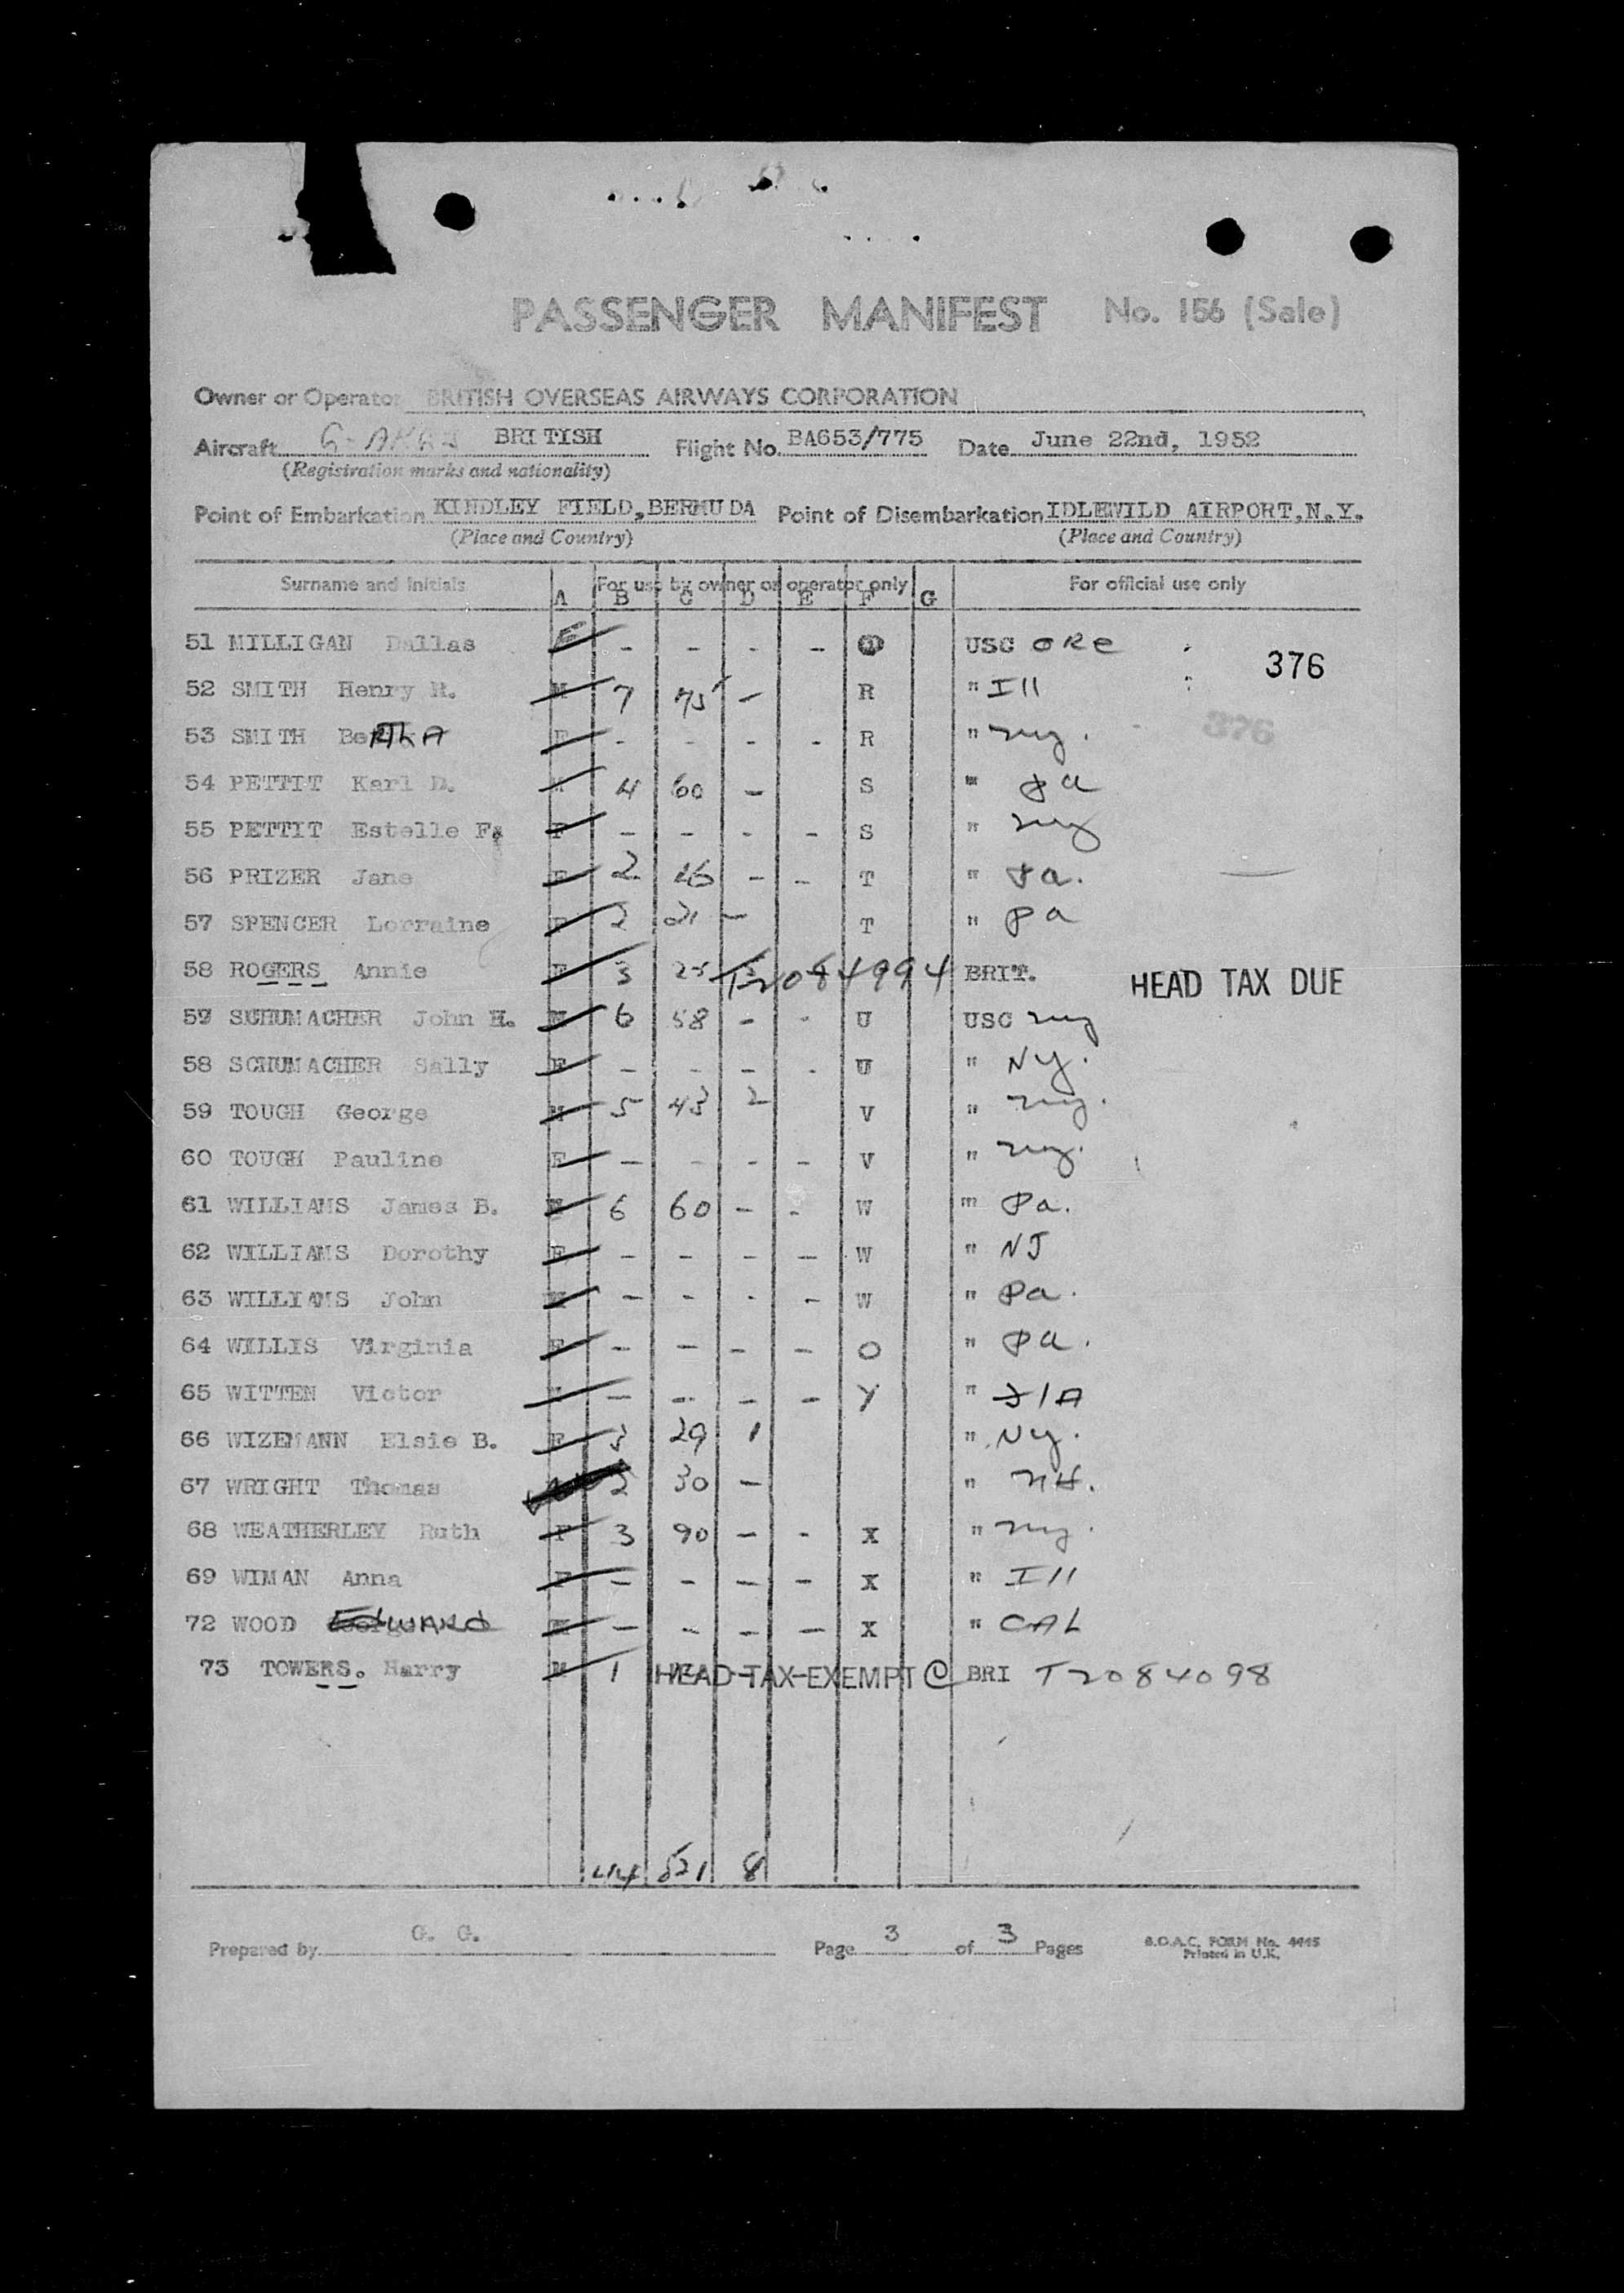 PASSENGER MANIFEST No. 156 (Sale)
Owner or Operator BRITISH OVERSEAS AIRWAYS CORPORATION
Aircraft BRITISH Flight No. BA653/775 Date June 22nd, 1952
(Registration marks and nationality)
Point of Embarkation KINDLEY FIELD, BERMUDA Point of Disembarkation IDLEWILD AIRPORT, N.Y.
(Place and Country) (Place and Country)
Surname and initials For use by owner or operator only For official use only
A B C D E F G
51 MILLIGAN Dallas - - - - USC ORE
376
52 SMITH Henry R. M 7 75 - R " Ill
376
53 SMITH BeRThA F - - - - R " ny.
54 PETTIT Karl D. M 4 60 - S " Pa
55 PETTIT Estelle F. F - - - - S " ny
56 PRIZER Jane F 2 - - T " Pa.
57 SPENCER Lorraine F 2 21 - T " Pa
58 ROGERS Annie F 3 25 T2084994 BRIT. HEAD TAX DUE
59 SCHUMACHER John H. M 6 58 - - U USC ny
58 SCHUMACHER Sally F - - - - U " Ny.
59 TOUGH George M 5 43 2 V " ny.
60 TOUGH Pauline F - - - - V " ny.
61 WILLIAMS James B. M 6 60 - - W " Pa.
62 WILLIAMS Dorothy F - - - - W " NJ
63 WILLIAMS John M - - - - W " Pa.
64 WILLIS Virginia F - - - - O " Pa.
65 WITTEN Victor M - - - - Y "
66 WIZEMANN Elsie B. F 3 29 1 " Ny.
67 WRIGHT Thomas 2 30 - " NH.
68 WEATHERLEY Ruth F 3 90 - - X " ny.
69 WIMAN Anna F - - - - X " Ill
72 WOOD EdWARd M - - - - X " CAL
73 TOWERS. Harry M 1 HEAD TAX EXEMPT C BRI T2084098
44 521 8
Prepared by G. G. Page 3 of 3 Pages B.O.A.C. FORM No. 4445
Printed in U.K.